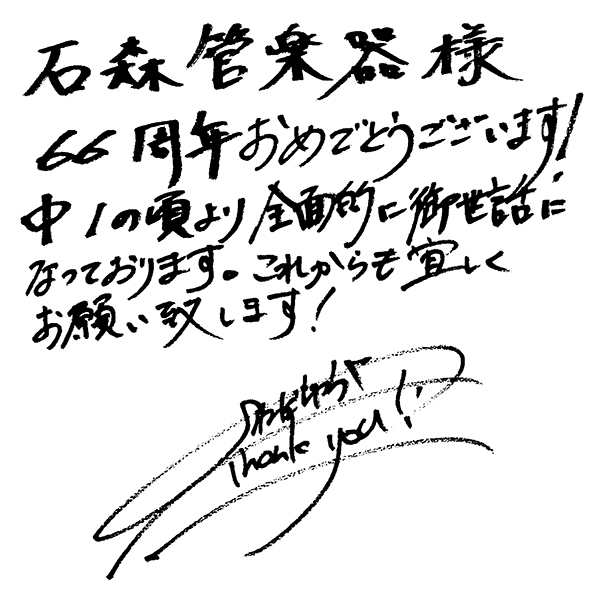 石森管楽器様
66周年おめでとうございます!
中1の頃より全面的に御世話に
なっております。これからも宜しく
お願い致します!
Thank you!!